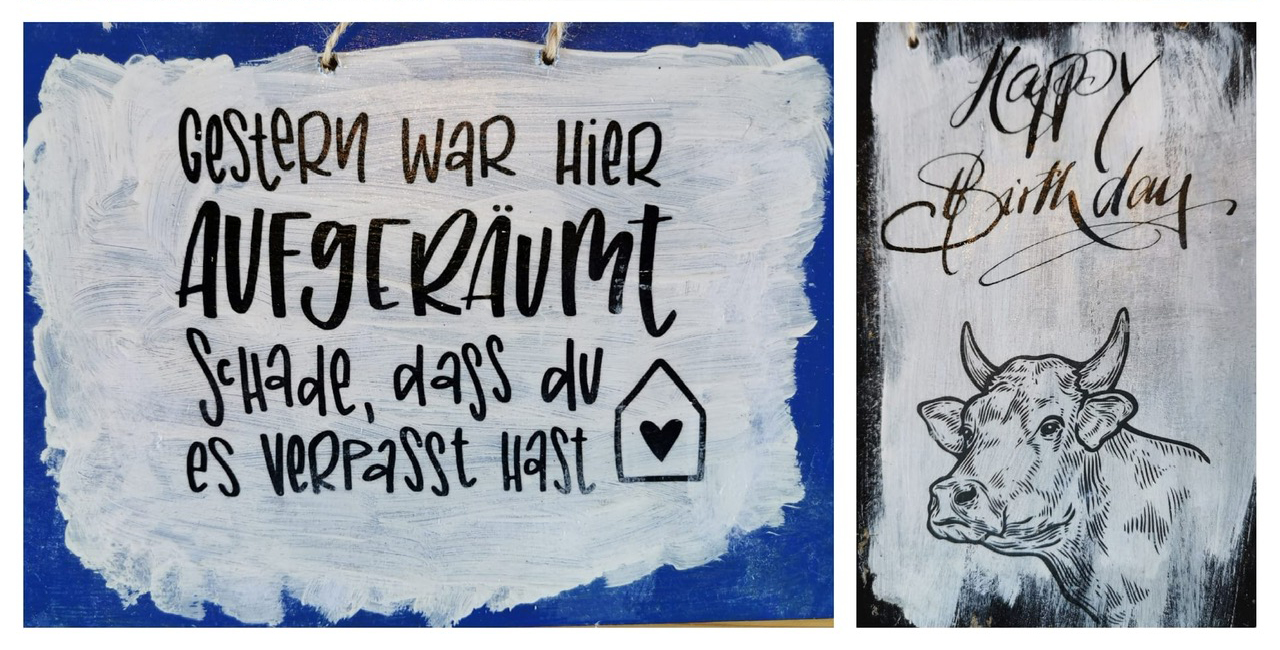 Gestern war hier
AUFGERÄUMT
Schade, dass du
es verpasst hast
Happy
Birthday